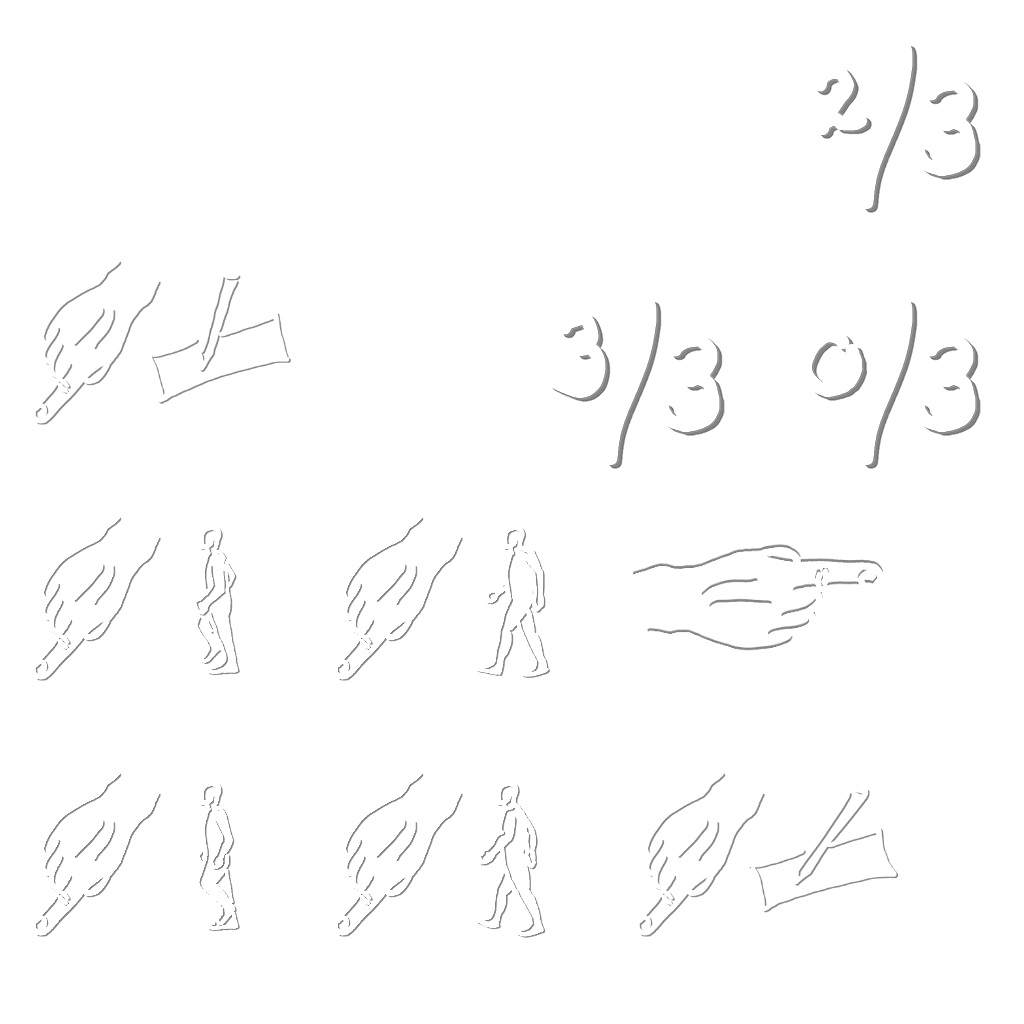 2/3
3/3 0/3